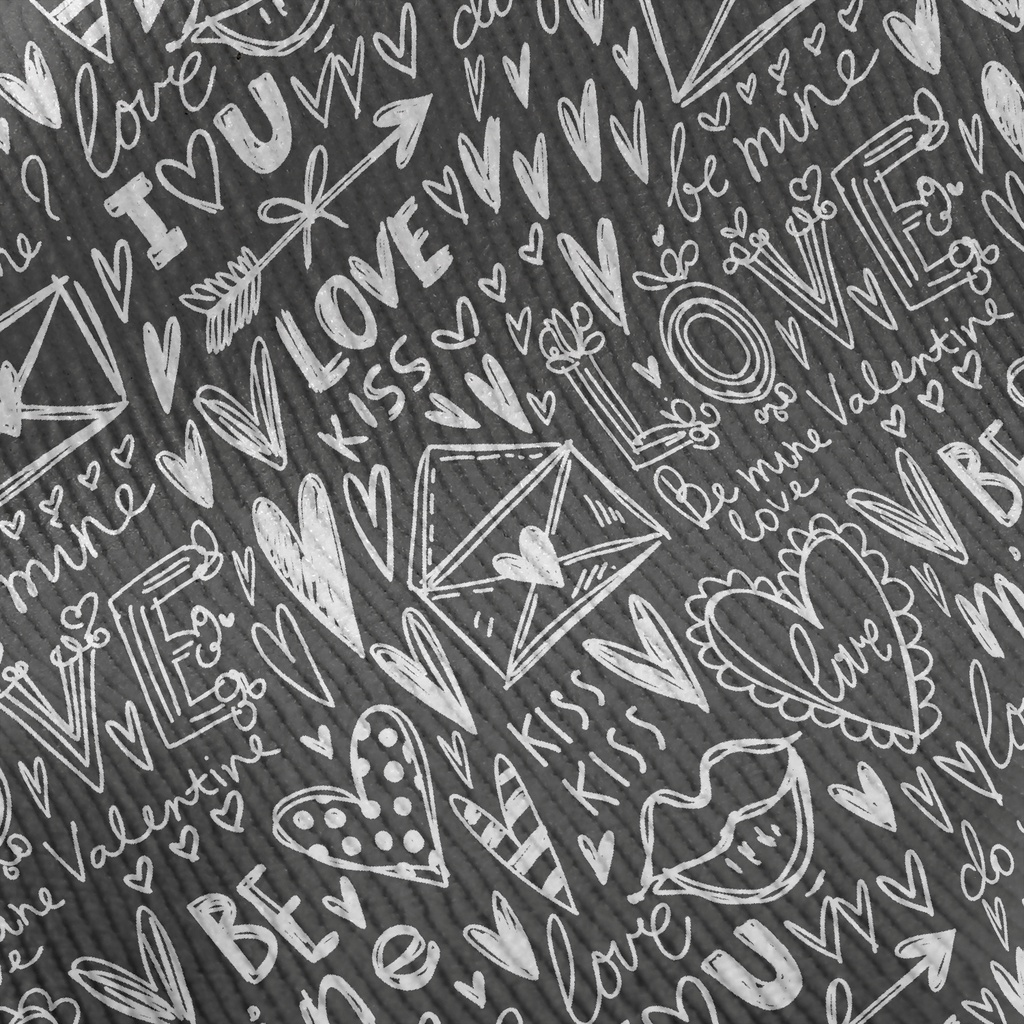 do
love
I U
be mine
LOVE
LOVE
KISS
Valentine
Be mine
love
BE
mine
VE
love
KISS
KISS
Valentine
BE
love
do
U